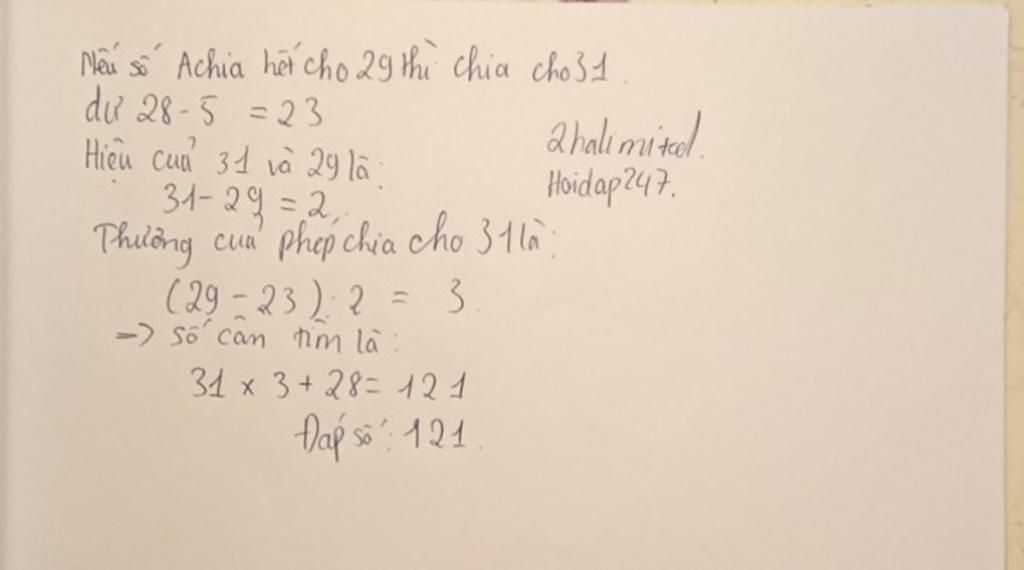 Nếu số A chia hết cho 29 thì chia cho 31
dư 28 - 5 = 23
Hiệu của 31 và 29 là:
31 - 29 = 2
Thương của phép chia cho 31 là:
(29 - 23) : 2 = 3.
-> số cần tìm là:
31 x 3 + 28 = 121
Đáp số: 121.
2halimited.
Hoidap247.